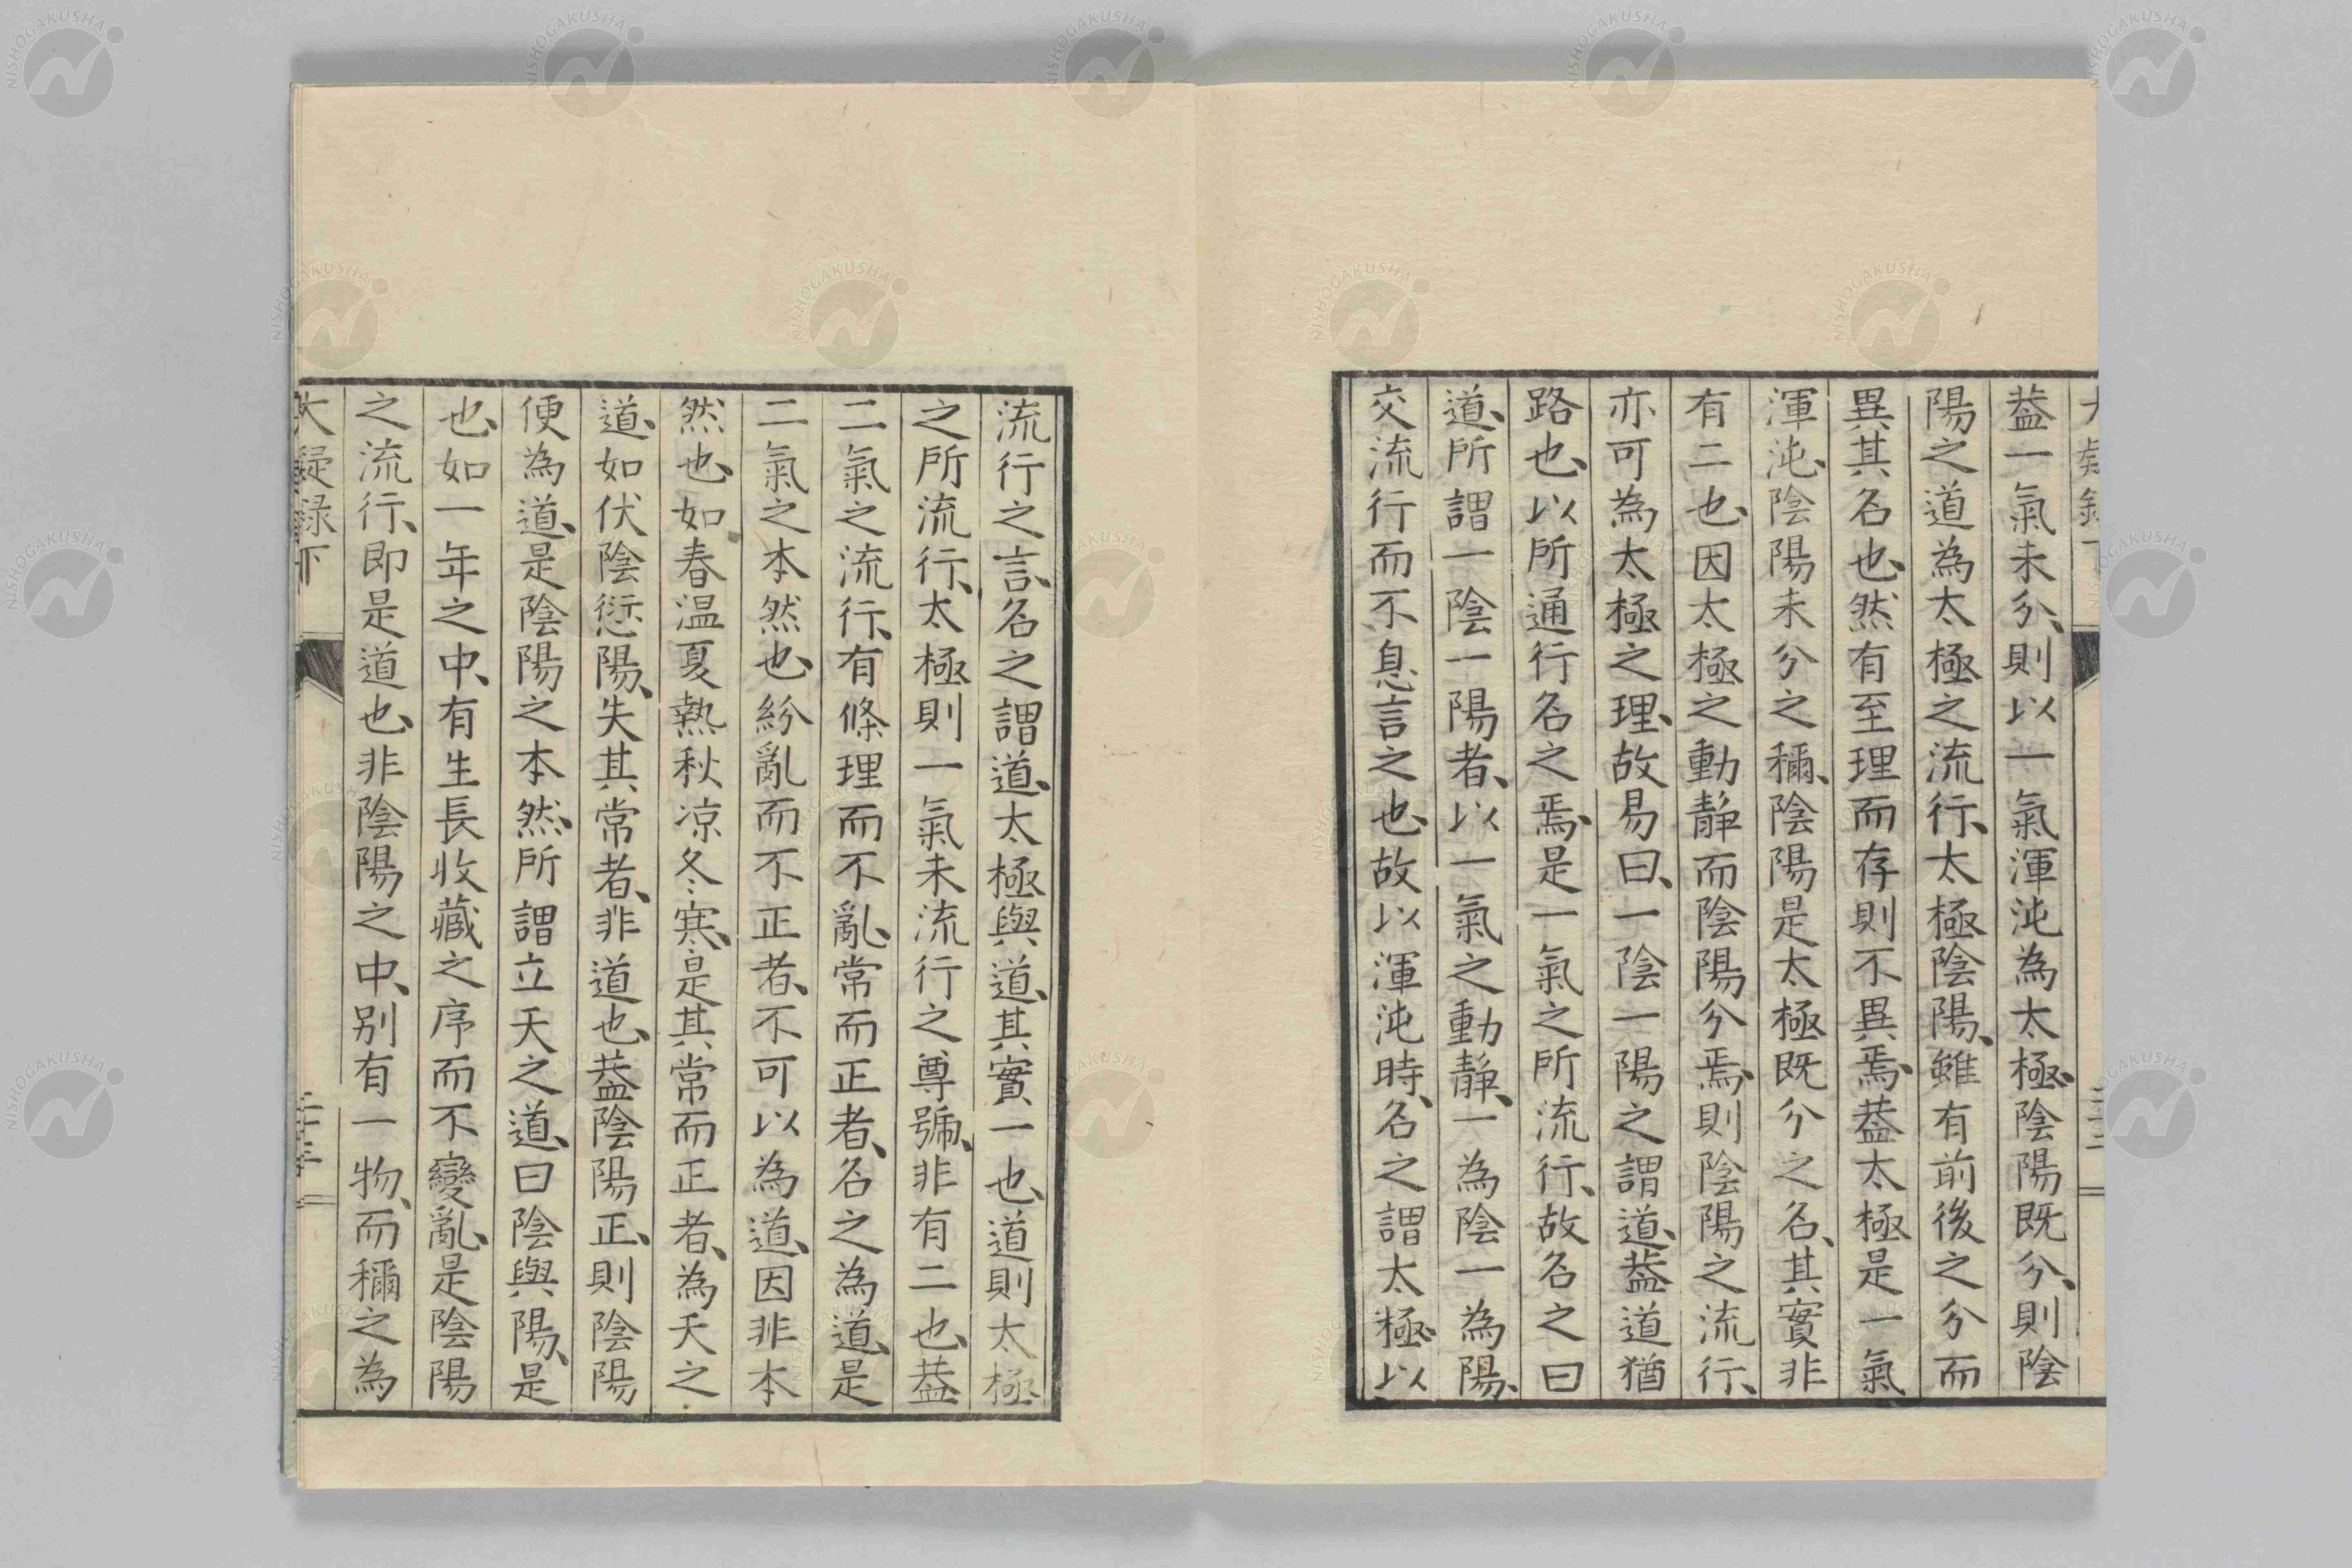 蓋一氣未分、則以一氣渾沌為太極、陰陽既分、則陰
陽之道為太極之流行、太極陰陽、雖有前後之分而
異其名也、然有至理而存則不異焉、蓋太極是一氣
渾沌、陰陽未分之稱、陰陽是太極既分之名、其實非
有二也、因太極之動静而陰陽分焉、則陰陽之流行、
亦可為太極之理、故易曰、一陰一陽之謂道、蓋道猶
路也、以所通行名之焉、是一氣之所流行、故名之曰
道、所謂一陰一陽者、以一氣之動静、一為陰一為陽、
交流行而不息言之也、故以渾沌時、名之謂太極、以
流行之言、名之謂道、太極與道、其實一也、道則太極
之所流行、太極則一氣未流行之尊號、非有二也、蓋
二氣之流行、有條理而不亂、常而正者、名之為道、是
二氣之本然也、紛亂而不正者、不可以為道、因非本
然也、如春温夏熱秋凉冬寒、是其常而正者、為天之
道、如伏陰愆陽、失其常者、非道也、蓋陰陽正、則陰陽
便為道、是陰陽之本然、所謂立天之道、曰陰與陽、是
也、如一年之中、有生長收藏之序而不變亂、是陰陽
之流行、即是道也、非陰陽之中、別有一物、而稱之為
大疑録下
NISHOGAKUSHA